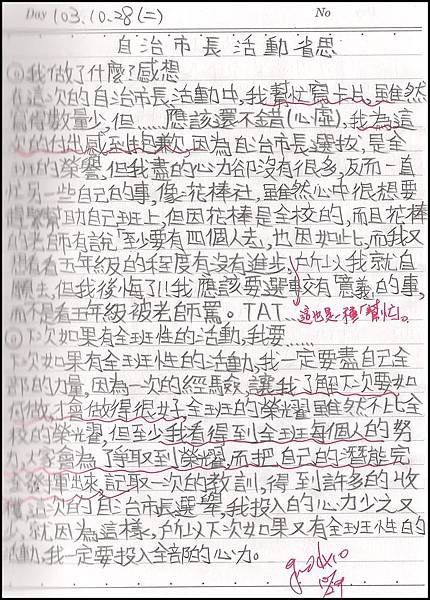 Day 103.10.28(二) No
自治市長活動省思
①我做了什麼?感想
在這次的自治市長活動中,我幫忙寫卡片,雖然
寫得數量少,但……應該還不錯(心虛),我為這
次的付出感到抱歉,因為自治市長選拔,是全
班的榮譽,但我盡的心力卻沒有很多,反而一直
忙另一些自己的事,像:花棒社,雖然心中很想要
幫助自己班上,但因花棒是全校的,而且花棒
的老師有說「至少要有四個人去」,也因如此,而我又
想看看五年級的程度有沒有進步,所以我就自
願去,但我後悔了!!我應該要選較有意義的事,
而不是看五年級被老師罵。TAT……這也是一種「幫忙」。
②下次如果有全班性的活動,我要……
下次如果有全班性的活動,我一定要盡自己全
部的力量,因為一次的經驗,讓我了解下次要如
何做,才會做得很好,全班的榮耀雖然不比全
校的榮光耀,但至少我看得到全班每個人的努
力,大家會為了爭取到榮耀,而把自己的潛能完
全發揮出來,記取一次的教訓,得到許多的收
穫,這次的自治市長選舉,我投入的心力少之又
少,就因為這樣,所以下次如果又有全班性的
活動,我一定要投入全部的心力。
good×10
10/29